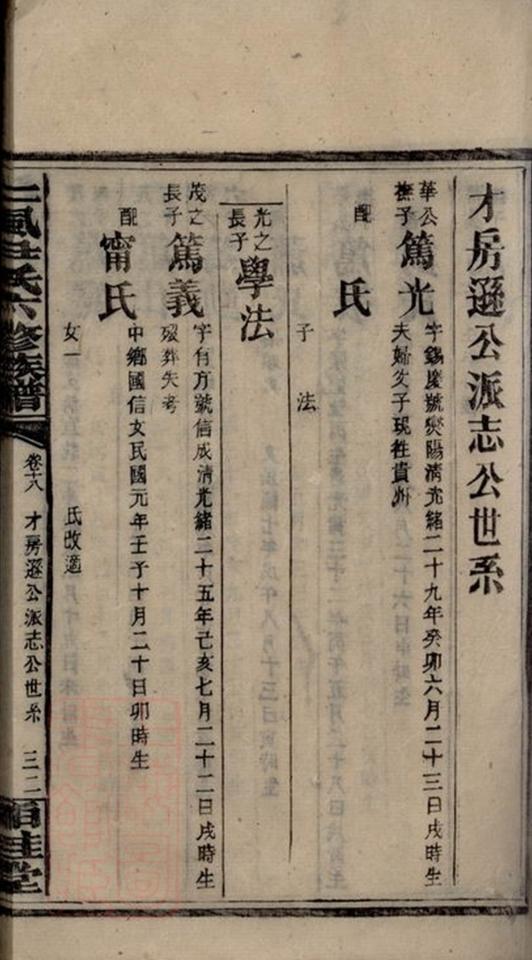 才房遜公派志公世系
華公
撫子
篤光
字錫慶號爕陽清光緒二十九年癸卯六月二十三日戌時生
夫婦父子現徃貴州
配
氏
子 法
光之
長子
學法
茂之
長子
篤義
字有方號信成清光緒二十五年己亥七月二十二日戌時生
歿葬失考
配
甯氏
中鄉國信女民國元年壬子十月二十日卯時生
女一 氏改適
尹氏六修族譜
卷十八 才房遜公派志公世系 三二
桂堂